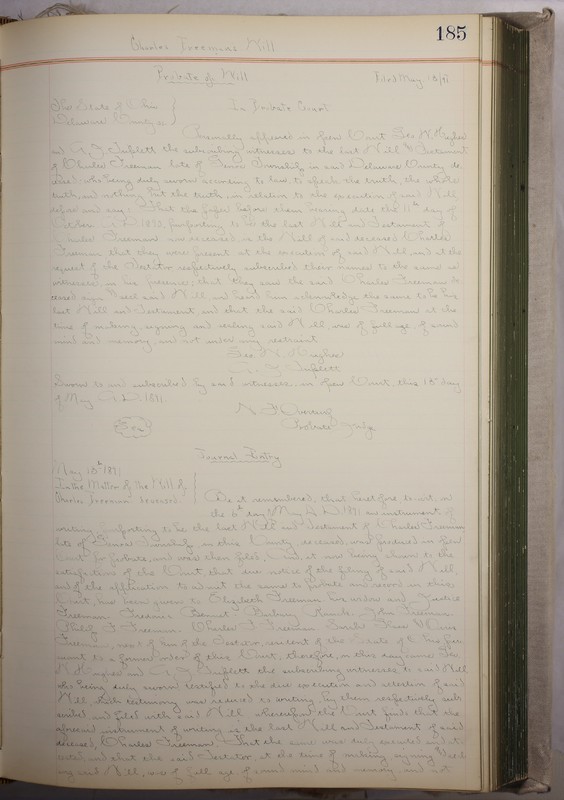 185
Charles Freemans Will
Probate of Will Filed May
The State of Ohio
Delaware County ss In Probate Court
Personally appeared in open Court Geo. W. Hughes
and the subscribing witnesses to the last Will & Testament
of Charles Freeman late of Township in said Delaware County de
ceased who being duly sworn according to law, to speak the truth, the whole
truth, and nothing but the truth in relation to the execution of said Will
depose and say: That the paper before them bearing date the 11th day of
October A.D. purporting to be the last Will and Testament of
Charles Freeman now deceased is the Will of said deceased Charles
Freeman that they were present at the execution of said Will, and at the
request of the Testator respectively subscribed their names to the same as
witnesses in his presence; that they saw the said Charles Freeman de
ceased sign and seal said Will and heard him acknowledge the same to be his
last Will and Testament, and that the said Charles Freeman at the
time of making, signing and sealing said Will, was of full age, of sound
mind and memory, and not under any restraint
Geo. W. Hughes
Sworn to and subscribed by said witnesses, in open Court, this day
of May A.D. 1891.
Probate Judge
Seal
Journal Entry
May 1891
In the Matter of the Will of
Charles Freeman deceased
Be it remembered, that heretofore to wit, on
the 6th day of May A.D. 1891 an instrument of
writing purporting to be the last Will and Testament of Charles Freeman
late of Township, in this County deceased, was produced in open
Court for probate, and was then filed, And, it now being shown to the
satisfaction of the Court that due notice of the filing of said Will,
and of the application to admit the same to probate and record in this
Court, has been given to Elizabeth Freeman his widow and
Freeman John Freeman
Freeman Charles Freeman
Freeman, next of kin of the Testator, resident of the State of Ohio pur
suant to a former order of this Court, therefore, on this day came Geo.
W. Hughes and the subscribing witnesses to said Will
who being duly sworn testified to the due execution and attestation of said
Will, which testimony was reduced to writing by them respectively sub
scribed and filed with said Will whereupon the Court finds that the
aforesaid instrument of writing is the last Will and Testament of said
deceased, Charles Freeman That the same was duly executed and at
tested, and that the said Testator, at the time of making, signing and seal
ing said Will, was of full age of sound mind and memory, and not